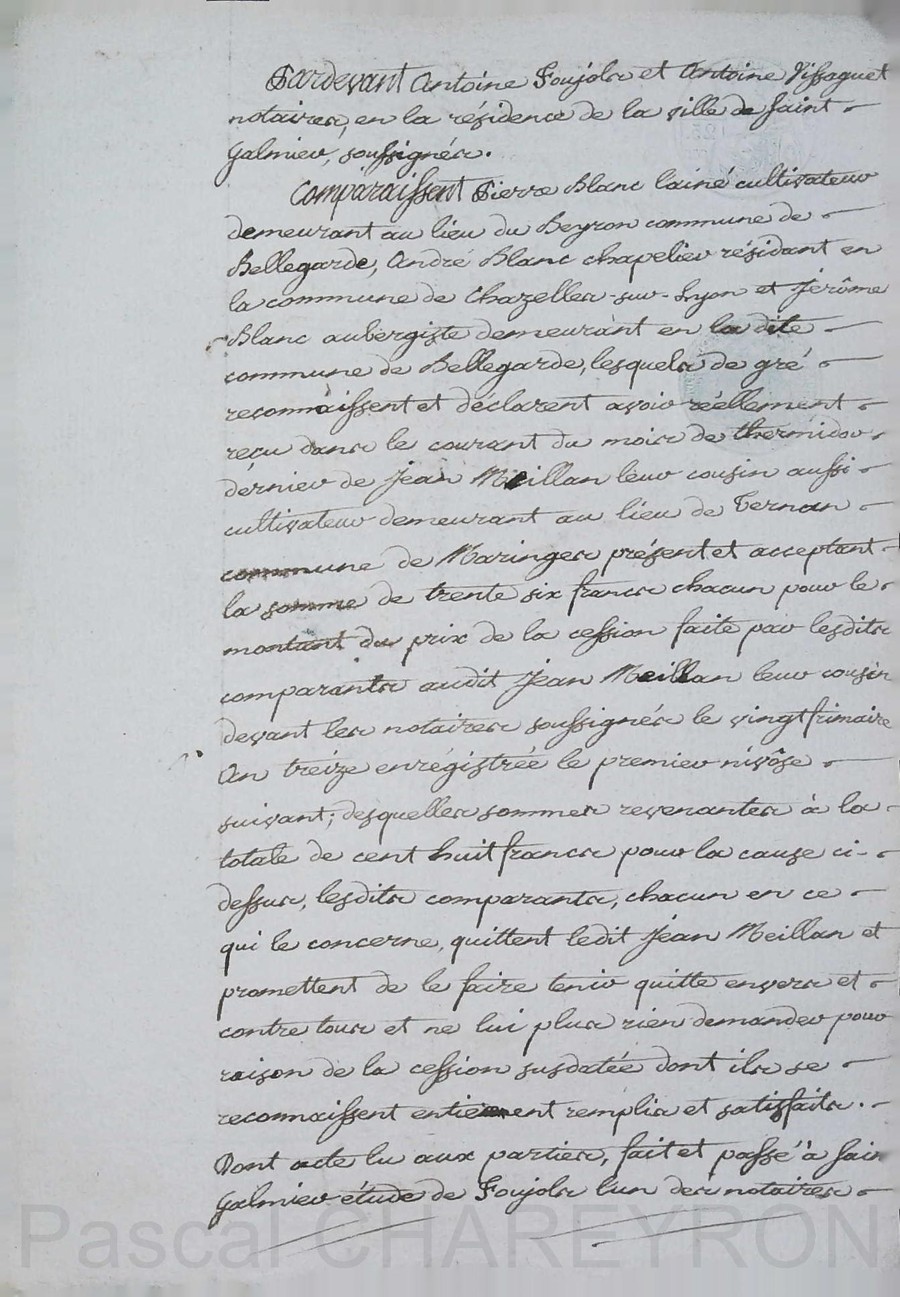 Pardevant Antoine Foujols et Antoine Vissaguet
notaires, en la résidence de la ville de Saint
Galmier, soussignés.
Comparaissent Pierre Blanc lainé cultivateur
demeurant au lieu du Beyron commune de
Bellegarde, André Blanc chapelier résidant en
la commune de Chazelles-sur-Lyon et Jérôme
Blanc aubergiste demeurant en la dite
commune de Bellegarde, lesquels de gré
reconnaissent et déclarent avoir réellement
reçu dans le courant du mois de thermidor
dernier de Jean Meillan leur cousin aussi
cultivateur demeurant au lieu de Ternan
commune de Maringes présent et acceptant
la somme de trente six francs chacun pour le
montant du prix de la cession faite par lesdits
comparants audit Jean Meillan leur cousin
devant les notaires soussignés le vingt frimaire
An treize enrégistrée le premier nivôse
suivant; desquelles sommes revenantes à la
totale de cent huit francs pour la cause ci-
dessus, lesdits comparants, chacun en ce
qui le concerne, quittent ledit Jean Meillan et
promettent de le faire tenir quitte envers et
contre tous et ne lui plus rien demander pour
raison de la cession susdatée dont ils se
reconnaissent entierement remplis et satisfaits.
Dont acte lu aux parties, fait et passé à Sain
Galmier étude de Foujols l'un des notaires
Pascal CHAREYRON